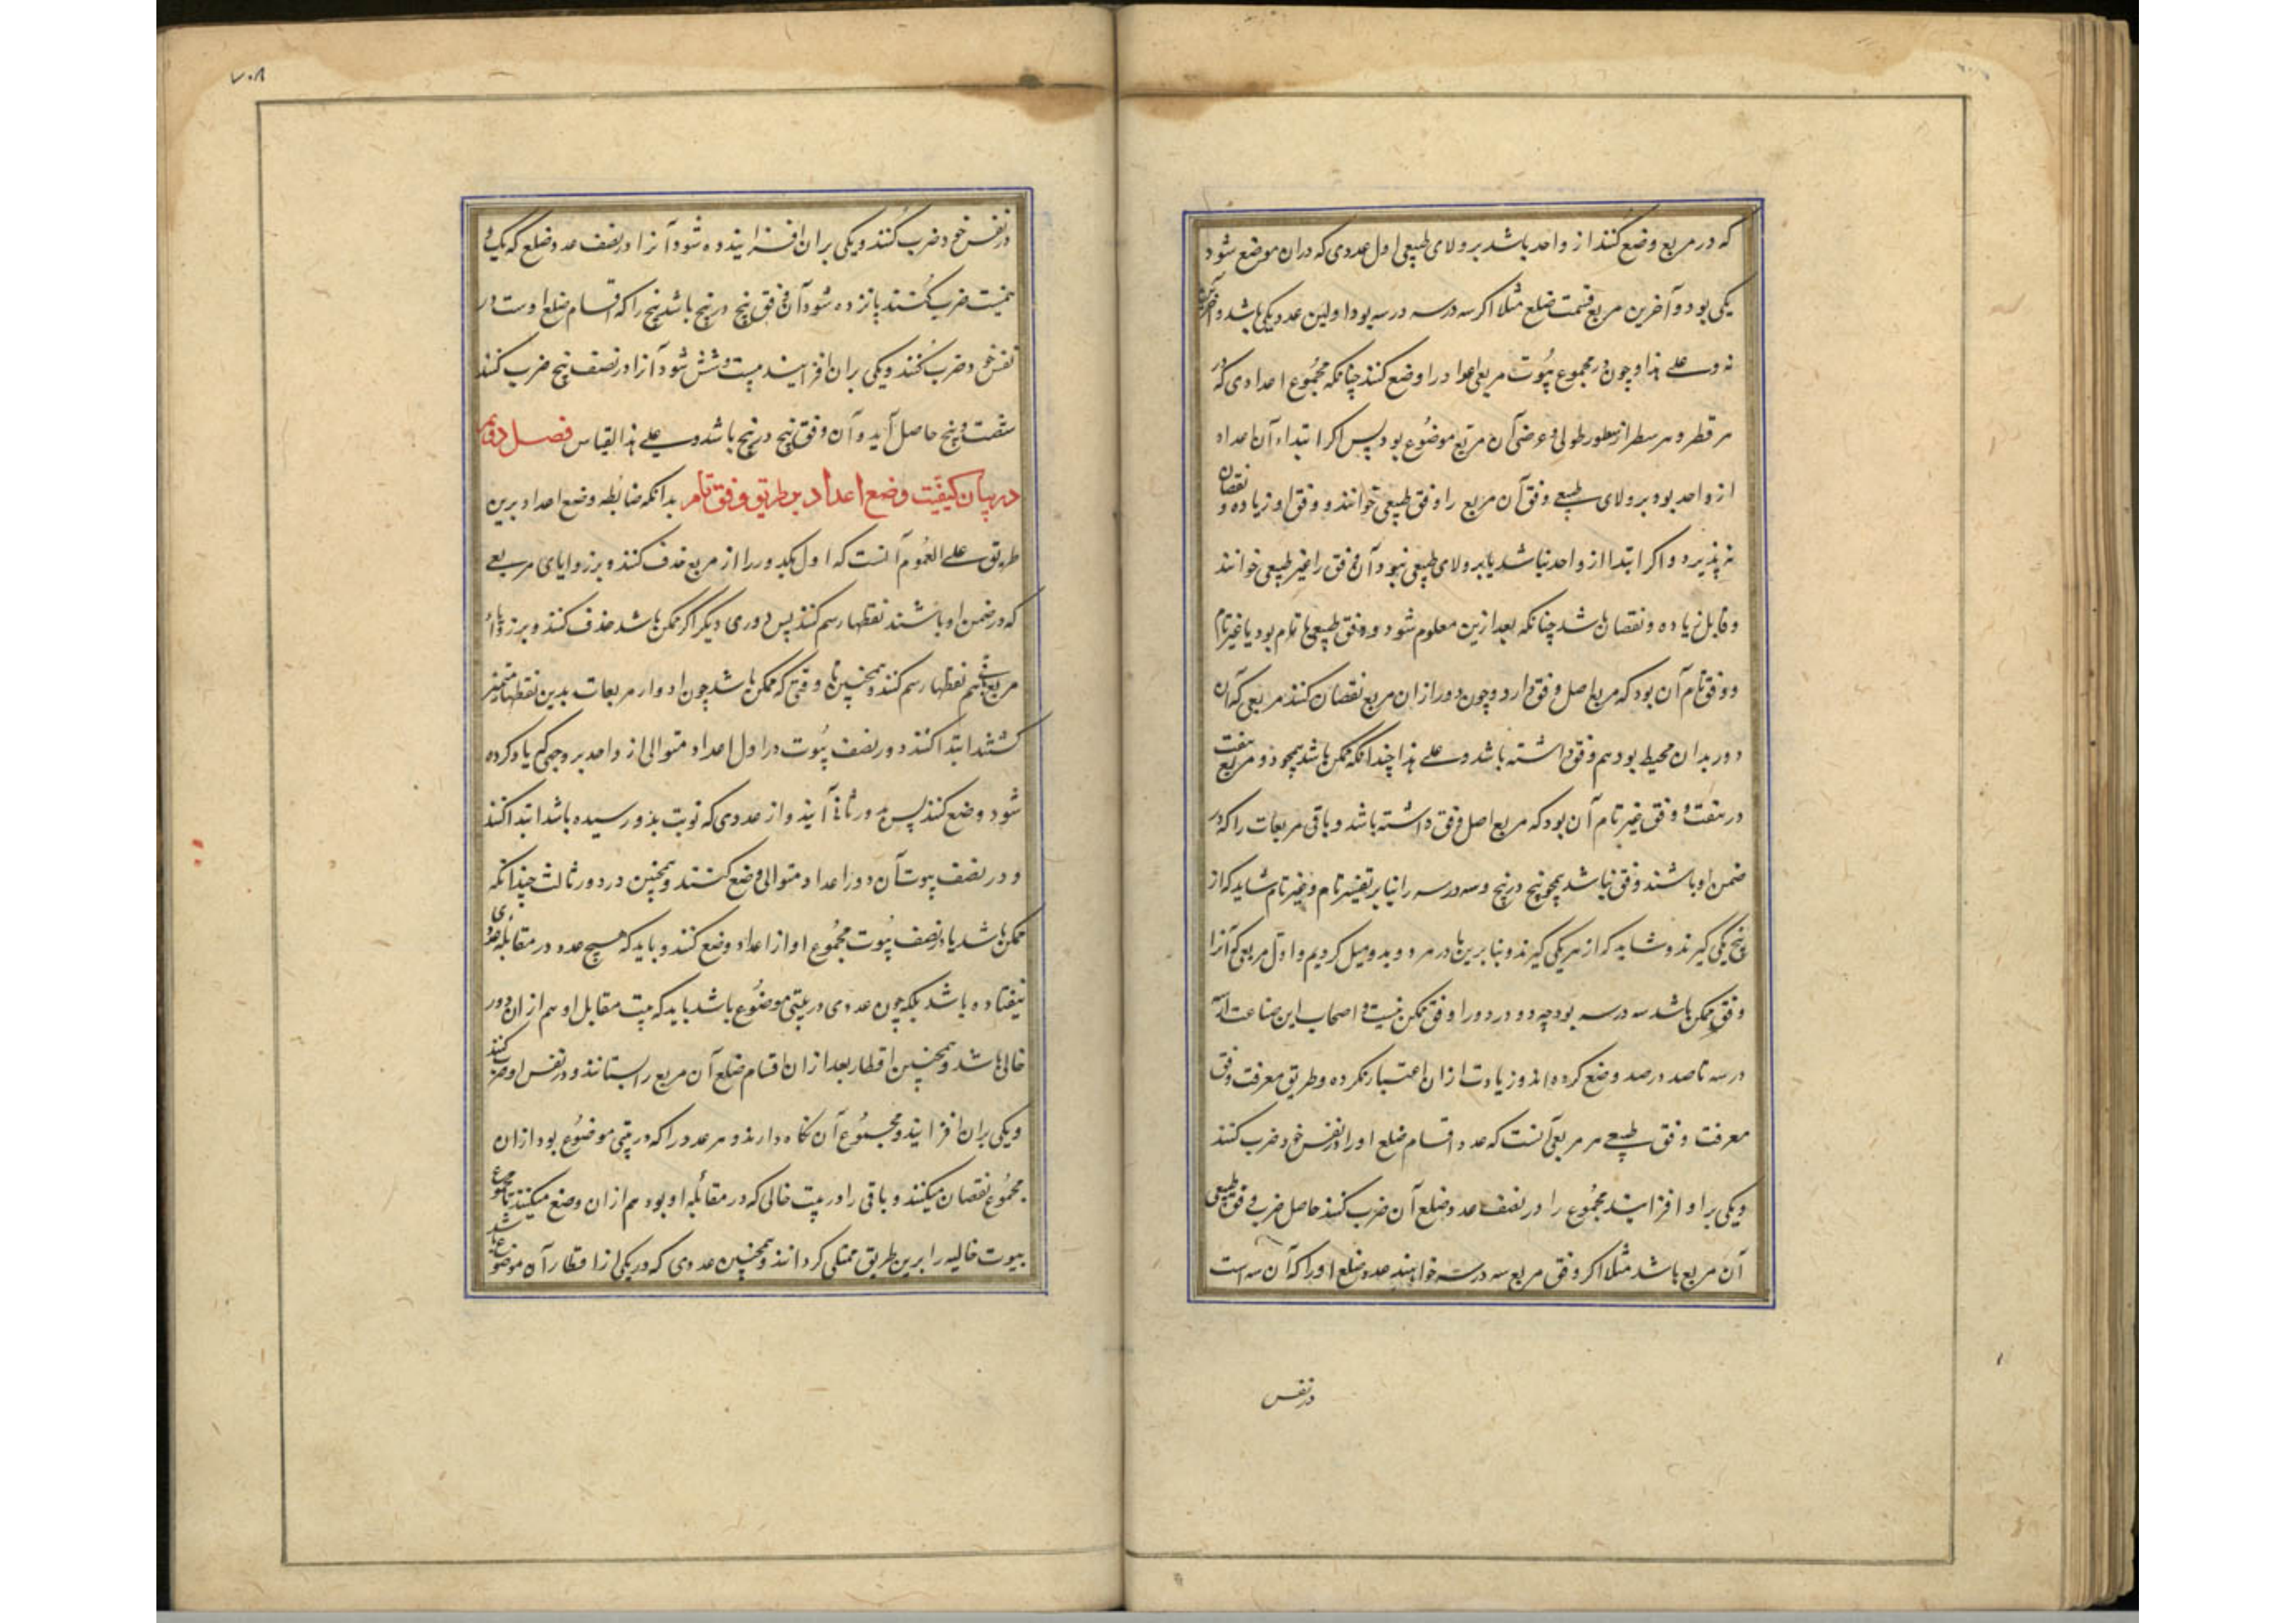 که در مربع وضع کنند از واحد باشد بر ولای طبیعی اول عددی که دران موضع شود
یکی بود و آخرین مربع قسمت ضلع مثلا اکر سه در سه بود اولین عدد یکی باشد و آخرین
نه و علی هذا و چون در مجموع بیوت مربعی اعداد را وضع کنند چنانکه مجموع اعدادی که در
هر قطر و هر سطر از سطور طولی و عرضی آن مربع موضوع بود پس اکر ابتداء آن اعداد
از واحد بود بر ولای طبیعی وفق آن مربع را وفق طبیعی خوانند و وفق او زیاده و نقصان
نپذیرد و اکر ابتدا از واحد نباشد یا بر ولای طبیعی نبود آن وفق را غیر طبیعی خوانند
و قابل زیاده و نقصان باشد چنانکه بعد ازین معلوم شود و وفق طبیعی یا تام بود یا غیر تام
و وفق تام آن بود که مربع اصل وفق دارد و چون دور از ان مربع نقصان کنند مربعی که آن
دور بدان محیط بود هم وفق داشته باشد و علی هذا چندانکه ممکن باشد همچو دو مربع هفت
در هفت و وفق غیر تام آن بود که مربع اصل وفق داشته باشد و باقی مربعات را که در
ضمن او باشند وفق نباشد همچو پنج در پنج و سه در سه را بنابر تفسیر تام و غیر تام شاید که از
پنج یکی کیرند و شاید که از هر یکی کیرند و بنابرین ما در هر دو بدو میل کردیم و اول مربعی که آنرا
وفق ممکن باشد سه در سه بود چه دو در دو را وفق ممکن نیست و اصحاب این صناعت از
در سه تا صد در صد وضع کرده اند و زیادت از ان اعتبار نکرده و طریق معرفت وفق
معرفت وفق طبیعی هر مربعی آنست که عدد اقسام ضلع او را در نفس خود ضرب کنند
و یکی بر او افزایند مجموع را در نصف عدد ضلع آن ضرب کنند حاصل ضرب وفق طبیعی
آن مربع باشد مثلا اکر وفق مربع سه در سه خواهند عدد ضلع او را که آن سه است
در نفس
۷۰۸
در نفس خود ضرب کنند و یکی بر ان افزایند ده شود آنرا در نصف عدد ضلع که یک و
نیمست ضرب کنند پانزده شود آن وفق پنج در پنج باشد پنج را که اقسام ضلع اوست در
نفس خود ضرب کنند و یکی بر ان افزایند بیست و شش شود آنرا در نصف پنج ضرب کنند
شصت و پنج حاصل آید و آن وفق پنج در پنج باشد و علی هذا القیاس فصل دوم
در بیان کیفیت وضع اعداد بر طریق وفق تام بدانکه ضابطه وضع اعداد برین
طریق علی العموم آنست که اول یکدور را از مربع حذف کنند و بر زوایای مربعی
که در ضمن او باشند نقطها رسم کنند پس دوری دیکر اکر ممکن باشد حذف کنند و بر زوایاء
مربع باقی هم نقطها رسم کنند و همچنین تا وقتی که ممکن باشد چون ادوار مربعات بدین نقطها متمیز
کشتند ابتدا کنند در نصف بیوت در اول اعداد متوالی از واحد بر وجهی که یاد کرده
شود وضع کنند پس بدور ثانی آیند و از عددی که نوبت بدو رسیده باشد ابتدا کنند
و در نصف بیوت آن دور اعداد متوالی وضع کنند و همچنین در دور ثالث چندانکه
ممکن باشد یا در نصف بیوت مجموع او از اعداد وضع کنند و باید که هیچ عدد در مقابله عددی
نیفتاده باشد بلکه چون عددی در بیتی موضوع باشد باید که بیت مقابل او هم از ان دور
خالی باشد و همچنین اقطار بعد از ان اقسام ضلع آن مربع را بستانند و در نفس او ضرب کنند
و یکی بران افزایند و مجموع آن نکاه دارند و هر عدد را که در بیتی موضوع بود از ان
مجموع نقصان میکنند و باقی را در بیت خالی که در مقابله او بود هم از ان وضع میکنند تا مجموع
بیوت خالیه را برین طریق ممتلی کردانند و همچنین عددی که در یکی از اقطار آن موضوع باشد